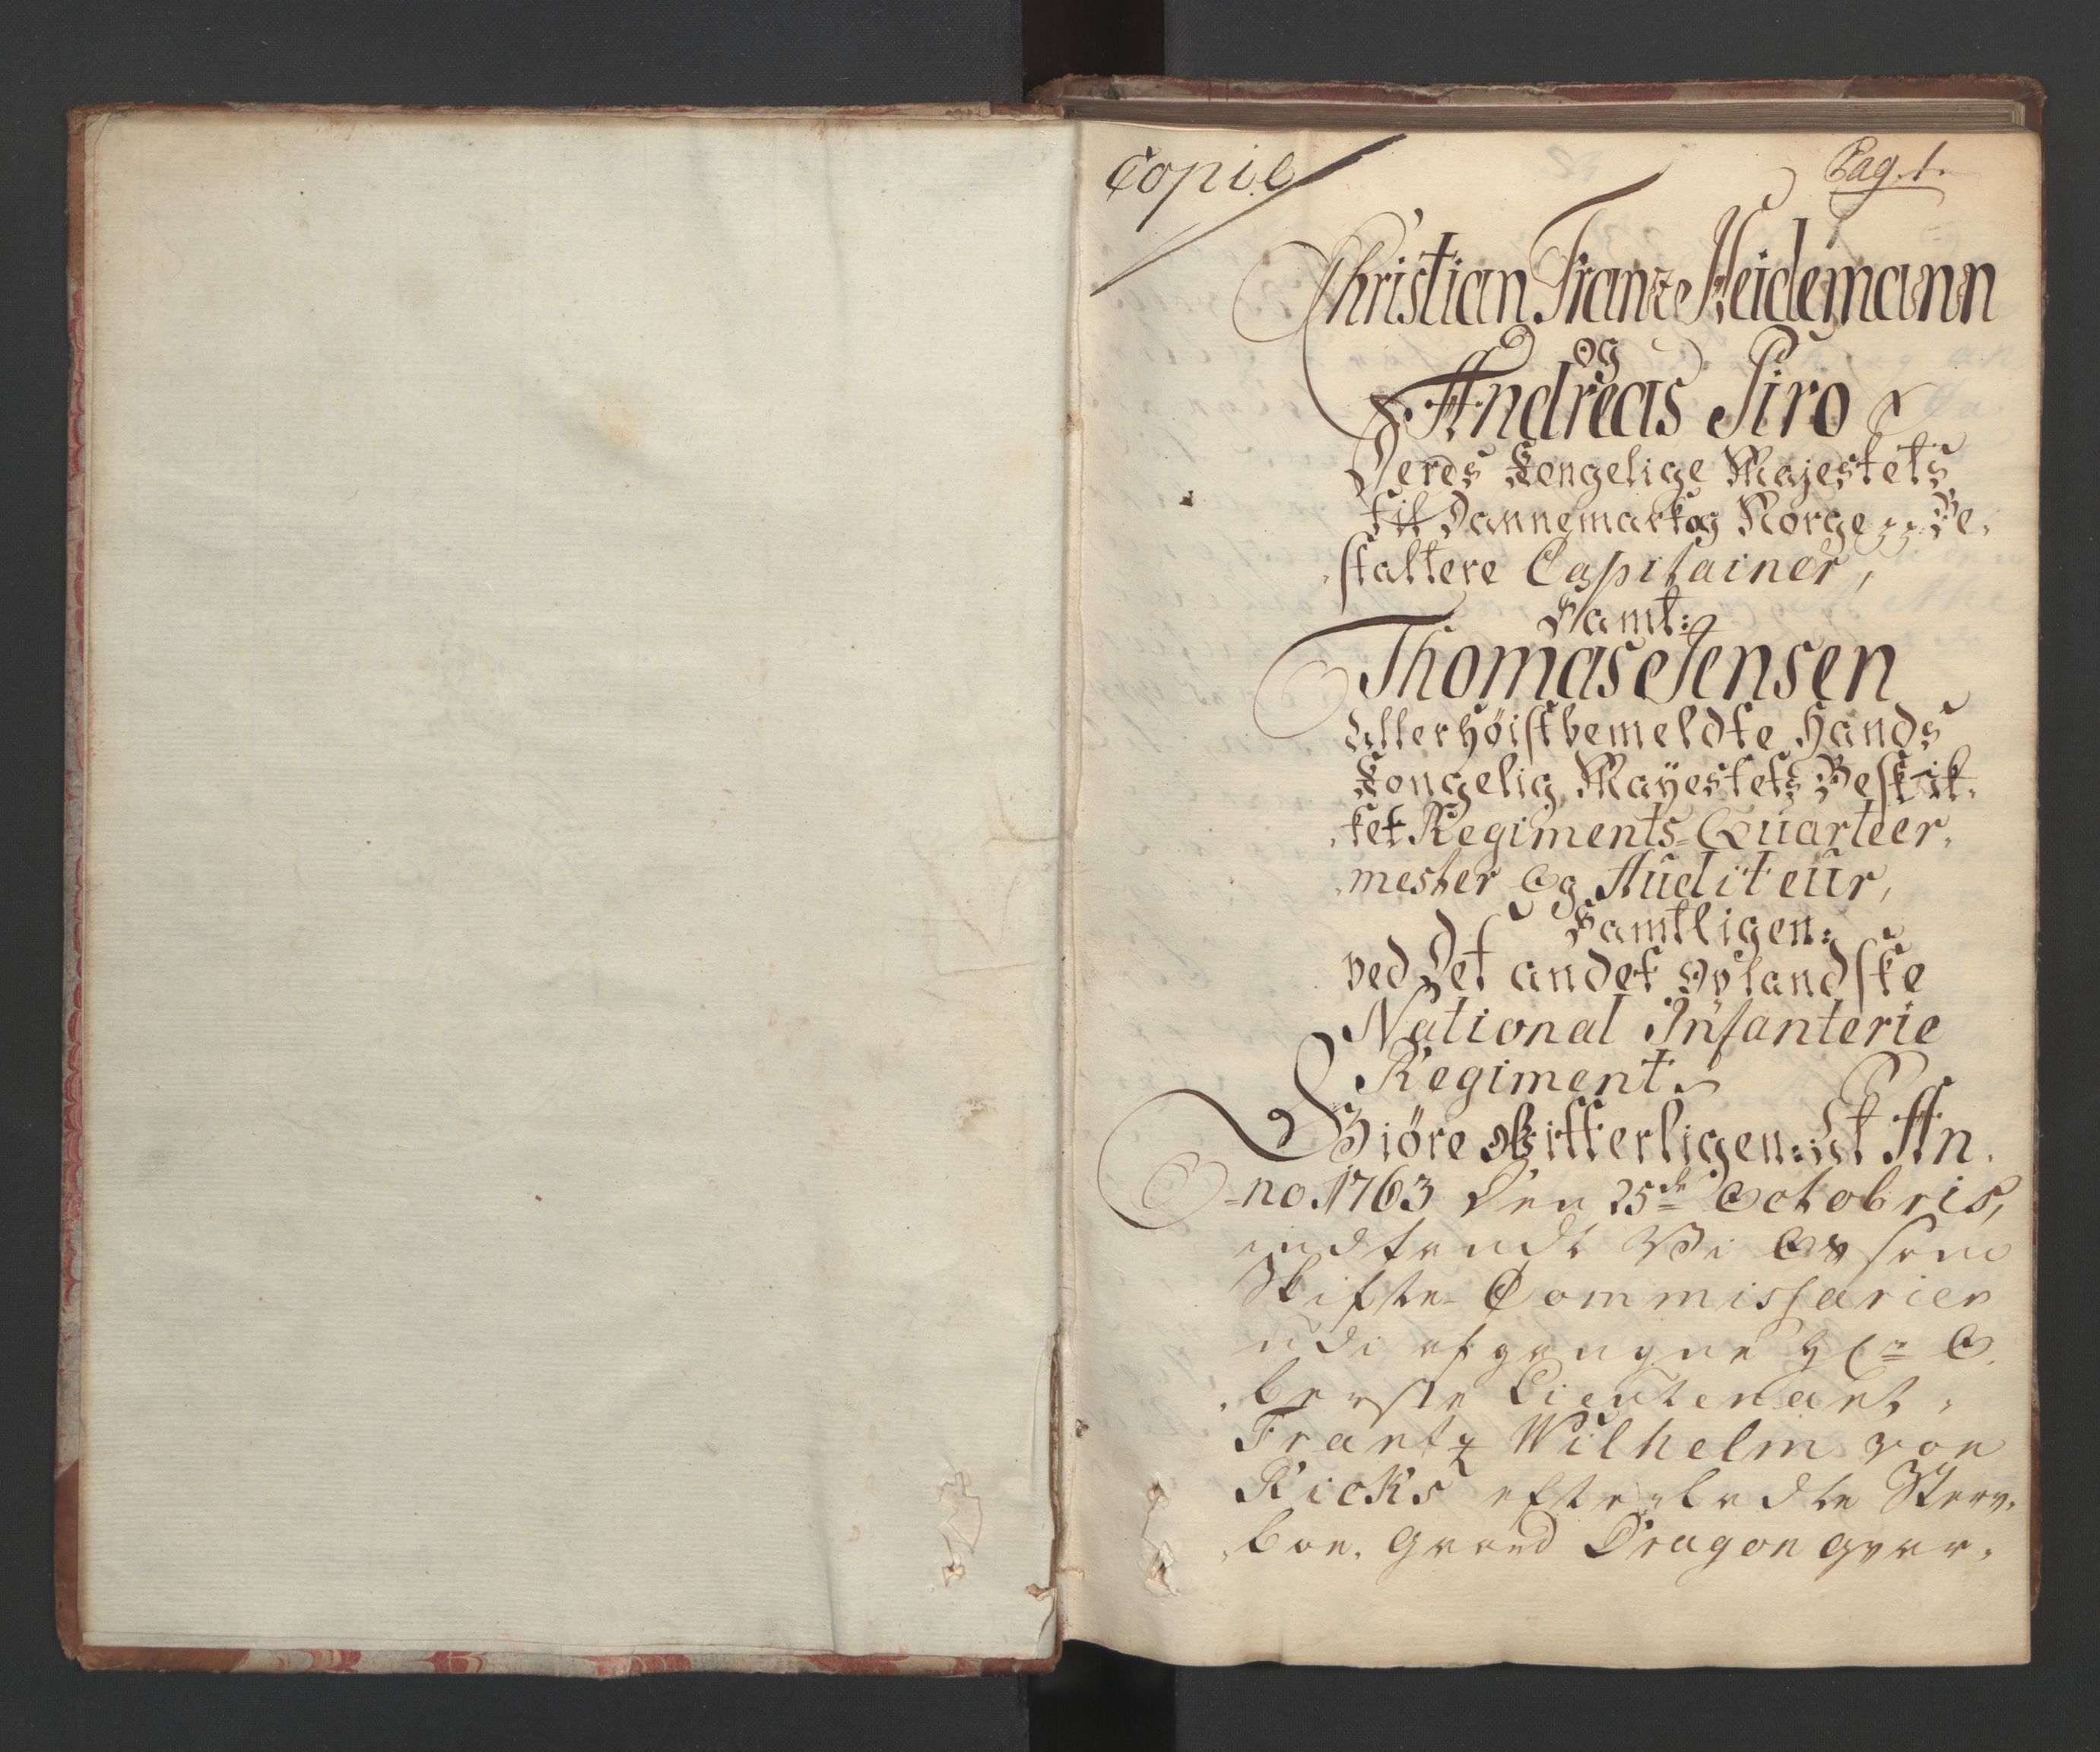 Copie
Pag. 1.
Christian Frantz Heidemann
og
Andreas Siro
Deres Kongelige Majestets
til Dannemark og Norge pp Be-
staltere Capitainer,
Samt:
Thomas Jensen
Allerhøistbemeldte Hands
Kongelig Mayestets Beskik-
ket Regiments-Quarteer-
mester Og Auditeur,
Samtligen:
ved Det andet Oplandske
National Infanterie
Regiment.
Giöre Vitterligen: At An-
no. 1763 Den 25de Octobris,
indfandt Vi Os som
Skifte-Commissarier
udi afgangne Hr O-
berste Lieutenant
Frantz Wilhelm von
Ricks efterladte Sterv-
boe, Gaard Dragon